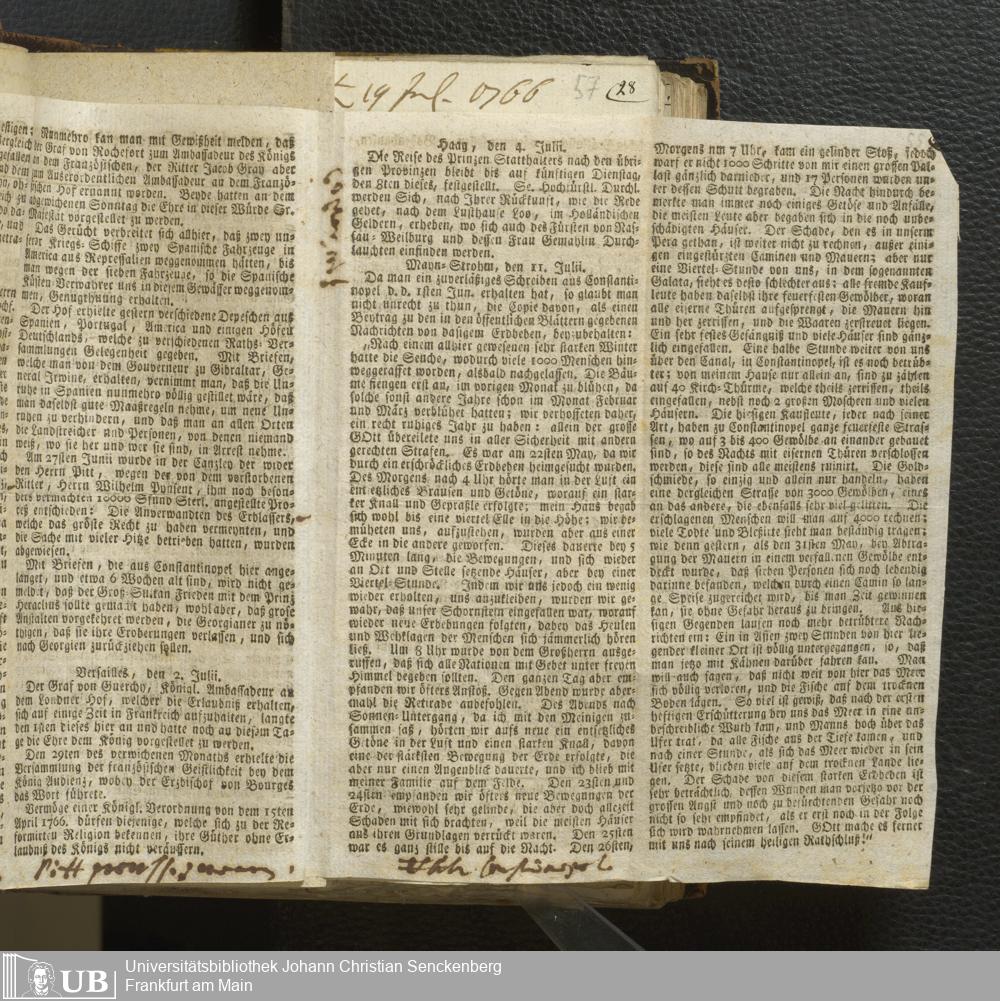 19 Jul. 1766
57
28
estigen; Nunmehro kan man mit Gewißheit melden, daß
der Graf von Rochefort zum Ambassadeur des Königs
in dem Französischen, der Ritter Jacob Gray aber
zum Ausserordentlichen Ambassadeur an dem Französ-
schen Hof ernannt worden. Beyde hatten an dem
abgewichenen Sonntag die Ehre in dieser Würde Sr.
Majestät vorgestellet zu werden.
Das Gerücht verbreitet sich allhier, daß zwey un-
serer Kriegs-Schiffe zwey Spanische Fahrzeuge in
America aus Repressalien weggenommen hätten, bis
man wegen der sieben Fahrzeuge, so die Spanische
Küsten-Verwahrer uns in diesem Gewässer weggenom-
men, Genugthuung erhalten.
Der Hof erhielte gestern verschiedene Depeschen aus
Spanien, Portugal, America und einigen Höfen
Deutschlands, welche zu verschiedenen Raths-Ver-
sammlungen Gelegenheit gegeben. Mit Briefen,
welche man von dem Gouverneur zu Gibraltar, Ge-
neral Irwine, erhalten, vernimmt man, daß die Un-
ruhe in Spanien nunmehro völlig gestillet wäre, daß
man daselbst gute Maaßregeln nehme, um neue Un-
ruhen zu verhindern, und daß man an allen Orten
die Landstreicher und Personen, von denen niemand
weiß, wo sie her und wer sie sind, in Arrest nehme.
Am 27sten Junii wurde in der Canzley der wider
den Herrn Pitt, wegen des von dem verstorbenen
Ritter, Herrn Wilhelm Pynsent, ihm noch beson-
ders vermachten 10000 Pfund Sterl. angestellte Pro-
ceß entschieden: Die Anverwandten des Erblassers,
welche das gröste Recht zu haben vermeynten, und
die Sache mit vieler Hitze betrieben hatten, wurden
abgewiesen.
Mit Briefen, die aus Constantinopel hier ange-
langet, und etwa 6 Wochen alt sind, wird nicht ge-
meldet, daß der Groß-Sultan Frieden mit dem Prinz
Heraclius sollte gemacht haben, wohl aber, daß grose
Anstalten vorgekehret werden, die Georgianer zu nö-
thigen, daß sie ihre Eroberungen verlassen, und sich
nach Georgien zurückziehen sollen.
Versailles, den 2. Julii.
Der Graf von Guerchy, Königl. Ambassadeur an
dem Londner Hof, welcher die Erlaubniß erhalten,
sich auf einige Zeit in Frankreich aufzuhalten, langte
den 1sten dieses hier an und hatte noch an diesem Ta-
ge die Ehre dem König vorgestellet zu werden.
Den 29ten des verwichenen Monaths erhielte die
Versammlung der französischen Geistlichkeit bey dem
König Audienz, wobey der Erzbischof von Bourges
das Wort führete.
Vermöge einer Königl. Verordnung von dem 15ten
April 1766. dürfen diejenige, welche sich zu der Re-
formirten Religion bekennen, ihre Güther ohne Er-
laubniß des Königs nicht veräussern.
Haag, den 4. Julii.
Die Reise des Prinzen Statthalters nach den übri-
gen Provinzen bleibt bis auf künftigen Dienstag,
den 8ten dieses, festgestellt. Se. Hochfürstl. Durchl.
werden Sich, nach Ihrer Rückkunft, wie die Rede
gehet, nach dem Lusthause Loo, im Holländischen
Geldern, erheben, wo sich auch des Fürsten von Nas-
sau-Weilburg und dessen Frau Gemahlin Durch-
lauchten einfinden werden.
Mayn-Strohm, den 11. Julii.
Da man ein zuverläßiges Schreiben aus Constanti-
nopel d. d. 1sten Jun. erhalten hat, so glaubt man
nicht unrecht zu thun, die Copie davon, als einen
Beytrag zu den in den öffentlichen Blättern gegebenen
Nachrichten von dasigem Erdbeben, beyzubehalten:
„Nach einem allhier gewesenen sehr starken Winter
hatte die Seuche, wodurch viele 1000 Menschen hin-
weggeraffet worden, alsbald nachgelassen. Die Bäu-
me fiengen erst an, im vorigen Monat zu blühen, da
solche sonst andere Jahre schon im Monat Februar
und März verblühet hatten; wir verhoffeten daher,
ein recht ruhiges Jahr zu haben: allein der grosse
GOtt übereilete uns in aller Sicherheit mit andern
gerechten Strafen. Es war am 22sten May, da wir
durch ein erschröckliches Erdbeben heimgesucht wurden.
Des Morgens nach 4 Uhr hörte man in der Luft ein
entsetzliches Brausen und Getöne, worauf ein star-
ker Knall und Gepraßle erfolgte; mein Haus begab
sich wohl bis eine viertel Elle in die Höhe; wir be-
müheten uns, aufzustehen, wurden aber aus einer
Ecke in die andere geworfen. Dieses dauerte bey 5
Minuten lang. Die Bewegungen, und sich wieder
an Ort und Stelle setzende Häuser, aber bey einer
Viertel-Stunde. Indem wir uns jedoch ein wenig
wieder erholten, und anzukleiden, wurden wir ge-
wahr, daß unser Schornstein eingefallen war, worauf
wieder neue Erbebungen folgten, dabey das Heulen
und Wehklagen der Menschen sich jämmerlich hören
ließ. Um 8 Uhr wurde von dem Großherrn ausge-
ruffen, daß sich alle Nationen mit Gebet unter freyen
Himmel begeben sollten. Den ganzen Tag aber em-
pfanden wir öfters Anstoß. Gegen Abend wurde aber-
mahl die Retirade anbefohlen. Des Abends nach
Sonnen-Untergang, da ich mit den Meinigen zu-
sammen saß, hörten wir aufs neue ein entsetzliches
Getöne in der Luft und einen starken Knall, davon
eine der stärksten Bewegung der Erde erfolgte, die
aber nur einen Augenblick dauerte, und ich blieb mit
meiner Familie auf dem Felde. Den 23sten und
24sten empfanden wir öfters neue Bewegungen der
Erde, wiewohl sehr gelinde, die aber doch allezeit
Schaden mit sich brachten, weil die meisten Häuser
aus ihren Grundlagen verrückt waren. Den 25sten
war es ganz stille bis auf die Nacht. Den 26sten,
Morgens um 7 Uhr, kam ein gelinder Stoß, jedoch
warf er nicht 1000 Schritte von mir einen grossen Pal-
last gänzlich darnieder, und 17 Personen wurden un-
ter dessen Schutt begraben. Die Nacht hindurch be-
merkte man immer noch einiges Getöse und Anfälle,
die meisten Leute aber begaben sich in die noch unbe-
schädigten Häuser. Der Schade, den es in unserm
Pera gethan, ist weiter nicht zu rechnen, außer eini-
gen eingestürzten Caminen und Mauern; aber nur
eine Viertel-Stunde von uns, in dem sogenannten
Galata, sieht es desto schlechter aus; alle fremde Kauf-
leute haben daselbst ihre feuerfesten Gewölber, woran
alle eiserne Thüren aufgesprengt, die Mauern hin
und her zerrissen, und die Waaren zerstreuet liegen.
Ein sehr festes Gefängniß und viele Häuser sind gänz-
lich eingefallen. Eine halbe Stunde weiter von uns
über den Canal, in Constantinopel, ist es noch betrüb-
ter; von meinem Hause nur allein an, sind zu zählen
auf 40 Kirch-Thürme, welche theils zerrissen, theils
eingefallen, nebst noch 2 großen Moscheen und vielen
Häusern. Die hiesigen Kaufleute, jeder nach seiner
Art, haben zu Constantinopel ganze feuerfeste Stras-
sen, wo auf 3 bis 400 Gewölbe an einander gebauet
sind, so des Nachts mit eisernen Thüren verschlossen
werden, diese sind alle meistens ruinirt. Die Gold-
schmiede, so einzig und allein nur handeln, haben
eine dergleichen Strasse von 3000 Gewölben, eines
an das andere, die ebenfalls sehr viel gelitten. Die
erschlagenen Menschen will man auf 4000 rechnen;
viele Todte und Bleßirte sieht man beständig tragen;
wie denn gestern, als den 31sten May, bey Abtra-
gung der Mauern in einem verfallnen Gewölbe ent-
deckt wurde, daß sieben Personen sich noch lebendig
darinne befanden, welchen durch einen Camin so lan-
ge Speise zugereichet wird, bis man Zeit gewinnen
kan, sie ohne Gefahr heraus zu bringen. Aus hie-
sigen Gegenden laufen noch mehr betrübtere Nach-
richten ein: Ein in Asien zwey Stunden von hier lie-
gender kleiner Ort ist völlig untergegangen, so, daß
man jetzo mit Kähnen darüber fahren kan. Man
will auch sagen, daß nicht weit von hier das Meer
sich völlig verloren, und die Fische auf dem trocknen
Boden lägen. So viel ist gewiß, daß nach der ersten
heftigen Erschütterung bey uns das Meer in eine un-
beschreibliche Wuth kam, und Manns hoch über das
Ufer trat, da alle Fische aus der Tiefe kamen, und
nach einer Stunde, als sich das Meer wieder in sein
Ufer setzte, blieben viele auf dem trocknen Lande lie-
gen. Der Schade von diesem starken Erdbeben ist
sehr beträchtlich, dessen Wunden man vorjetzo vor der
grossen Angst und noch zu befürchtenden Gefahr noch
nicht so sehr empfindet, als er erst noch in der Folge
sich wird wahrnehmen lassen. GOtt mache es ferner
mit uns nach seinem heiligen Rathschluß!“
UB
Universitätsbibliothek Johann Christian Senckenberg
Frankfurt am Main